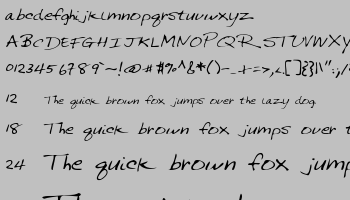 abcdefghijklmnopqrstuvwxyz
ABCDEFGHIJKLMNOPQRSTUVWXY
0123456789`~!@#%^&*()-_+=>,<.[]{}|\":;/
12 The quick brown fox jumps over the lazy dog
18 The quick brown fox jumps over t
24 The quick brown fox jump